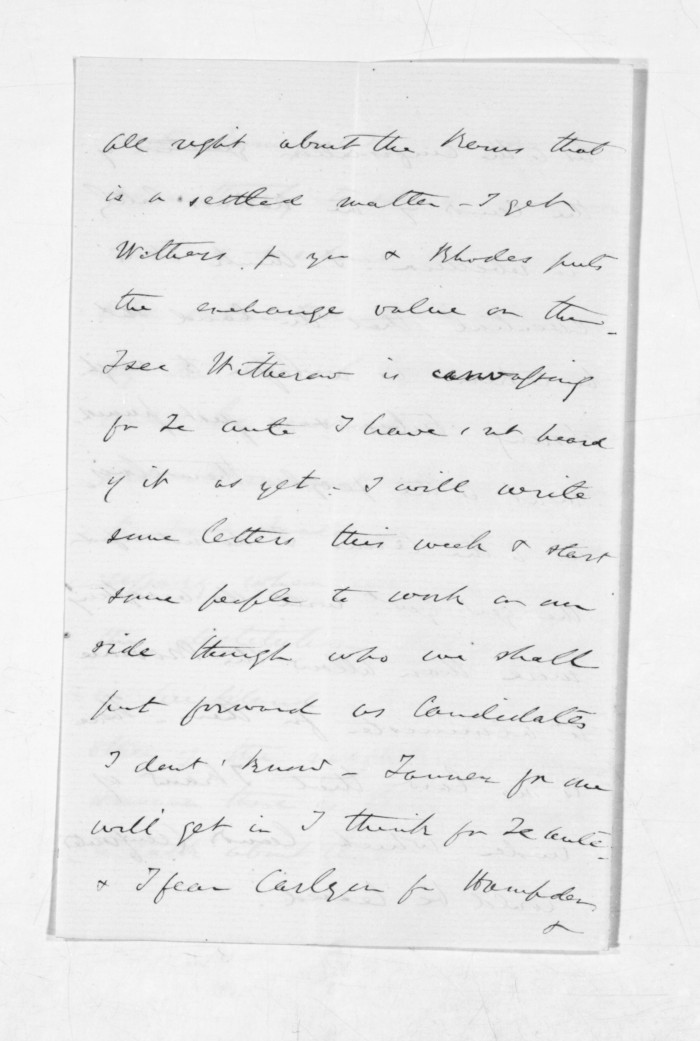 all right about the Rams that
is a settled matter - I get
Withers f you & Rhodes puts
the exchange value on them -
I see Witherow is canvassing
for Te aute I have n't heard
of it as yet - I will write
some letters this week & start
some people to work on our
side though who we shall
put forward as Candidates
I dont' know - Tanner for one
will get in I think for Te aute -
& I fear Carlyon for Hampden
&